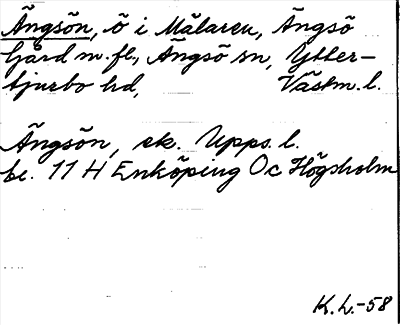 Ängsön, ö i Mälaren, Ängsö
Gård m.fl., Ängsö sn, Ytter-
tjurbo hd, Västm.l.
Ängsön, ek. Upps. l.
bl. 11 H Enköping Oc Högsholm
K.L.-58